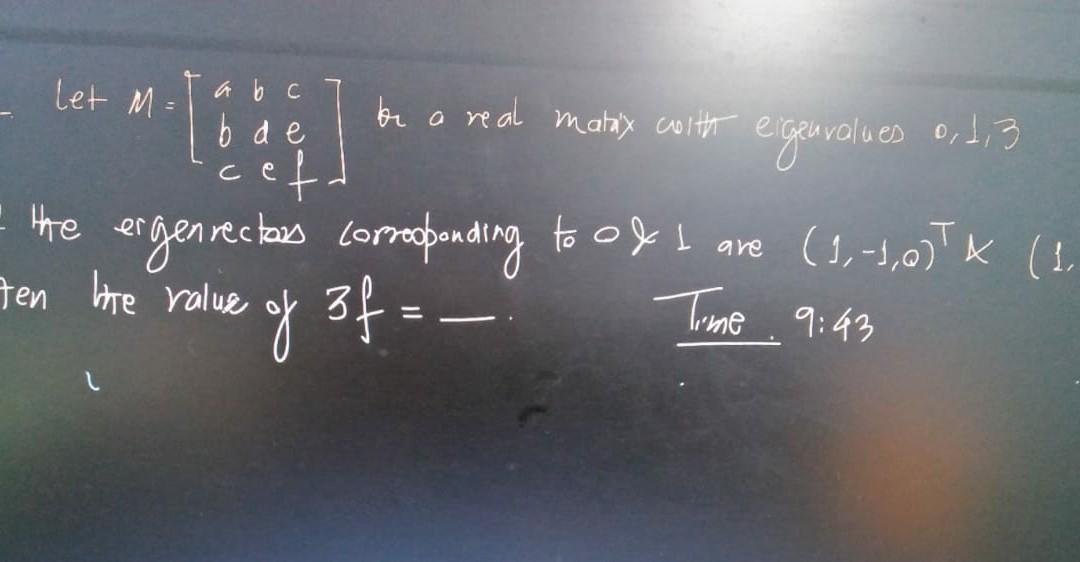 Let M = [ a b c
b d e
c e f ] be a real matrix with eigenvalues 0, 1, 3
the eigenvectors corresponding to 0 & 1 are (1, -1, 0)ᵀ & (1,
the value of 3f = __.
Time. 9:43